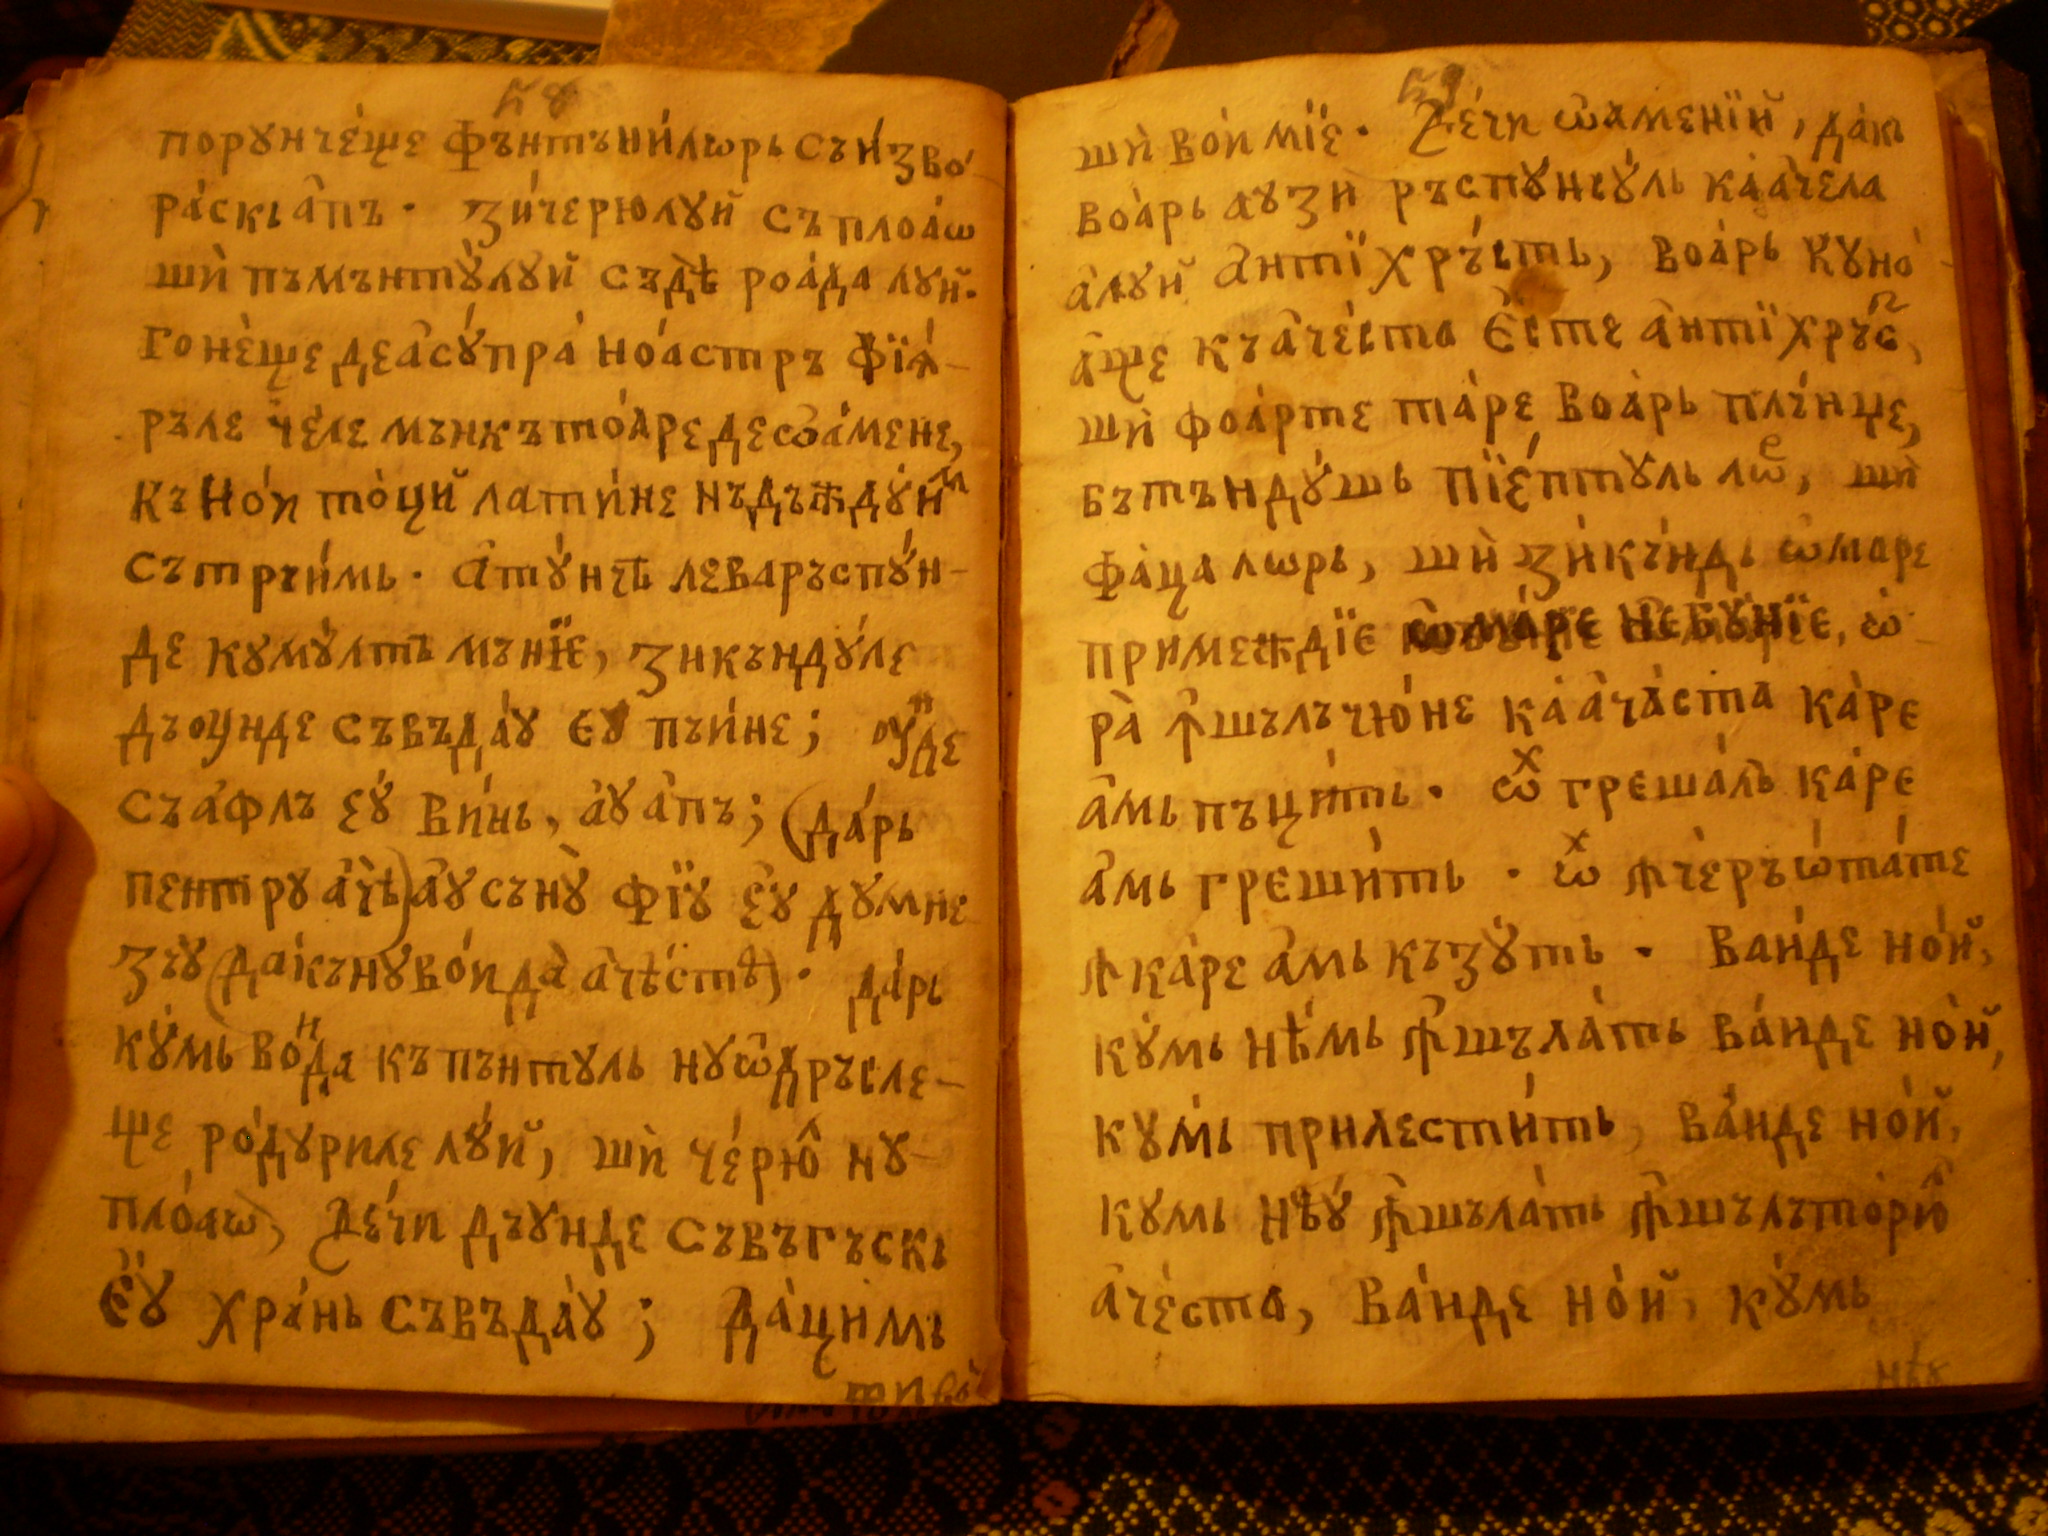 порꙋнчéще фънтъни́лѡрь съи́зво́-
ра́скь а҆пъ · зи́черюлꙋй съ плоа́ѡ
шѝ пъмънтꙋ́лꙋй съдѣ̀ роа́да лꙋй·
гонѐще деасꙋ́пра но́астръ фїѧ́-
ръле че́ле мънкъто́аре де ѡ҆а́мене,
къ но́и то́ци лати́не нъдъждꙋ́им
сътръи́мь · А҆тꙋ́нчѣ лева ръспꙋ́н-
де кꙋ мꙋ́лтъ мънїе, зикъндꙋ́ле
дъ оу҆нде съвъда́ꙋ єꙋ пъи́не; оу҆нде
съа́флъ єꙋ́ ви́нь, а҆ꙋ а҆пъ; (да́рь
пентрꙋ а҆чѣ) а҆ꙋ сънꙋ̀ фїꙋ є҆ꙋ дꙋмне
зъꙋ (да́къ нꙋ во́и да̀ а҆чѣ́стѣ) · да́рь
кꙋ́мь вои да къ пънтꙋль нꙋ ѡ҆дръсле-
ще ро́дꙋриле лꙋ́й, шѝ че́рю нꙋ-
пло́аѡ, Де́чи дъꙋнде съвъгъскь
Є҆́ꙋ хра́нь съвъда́ꙋ; Да́цимь
ши во́и мі́е · Де́чи ѡ҆аменїй, да́къ
воа́рь аꙋзѝ ръспꙋнсꙋ́ль ка а҆чела
а҆лꙋй А҆нтїхръ́сть, воа́рь кꙋно́-
а҆ще къ а҆че́ста Є҆сте а҆нтїхръ́с,
шѝ фоа́рте та́ре воа́рь плъ́нце,
бътъндꙋ́шь пїє́птꙋль лѡр, шѝ
фа́ца лѡрь, шѝ зи́къндь ѡ҆ маре
примеждїе ѡ҆ ма́ре небꙋнїе, ѡ҆-
ра̀ ꙟ҆шълъчю́не ка а҆ча́ста ка́ре
а҆мь пъци́ть · ѡ҆х грешалъ ка́ре
а҆мь греши́ть · ѡ҆х ꙟчеръѡ҆та́те
ꙟ ка́ре а҆мь къзꙋ́ть · Ва́йде но́й,
кꙋмь нѣ́мь ꙟ҆шъла́ть ва́йде но́й,
кꙋмь прилести́ть, ва́йде но́й,
кꙋмь нѣꙋ́ ꙟ҆шъла́ть ꙟ҆шълъто́рю
а҆че́ста, Ва́йде но́й, кꙋмь
нѣꙋ